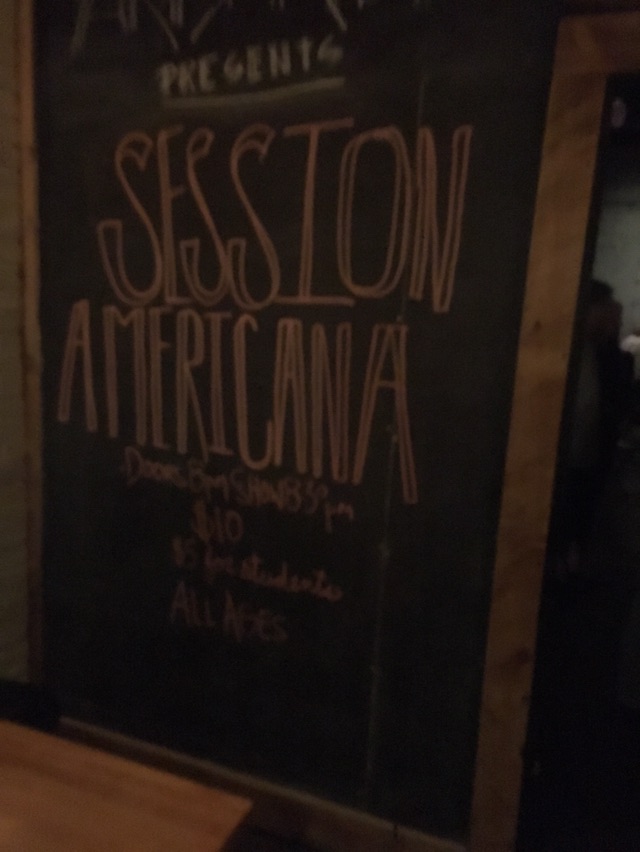 PRESENTS
SESSION
AMERICANA
DOORS 8pm SHOW 8:30pm
$10
$5 for students
ALL AGES